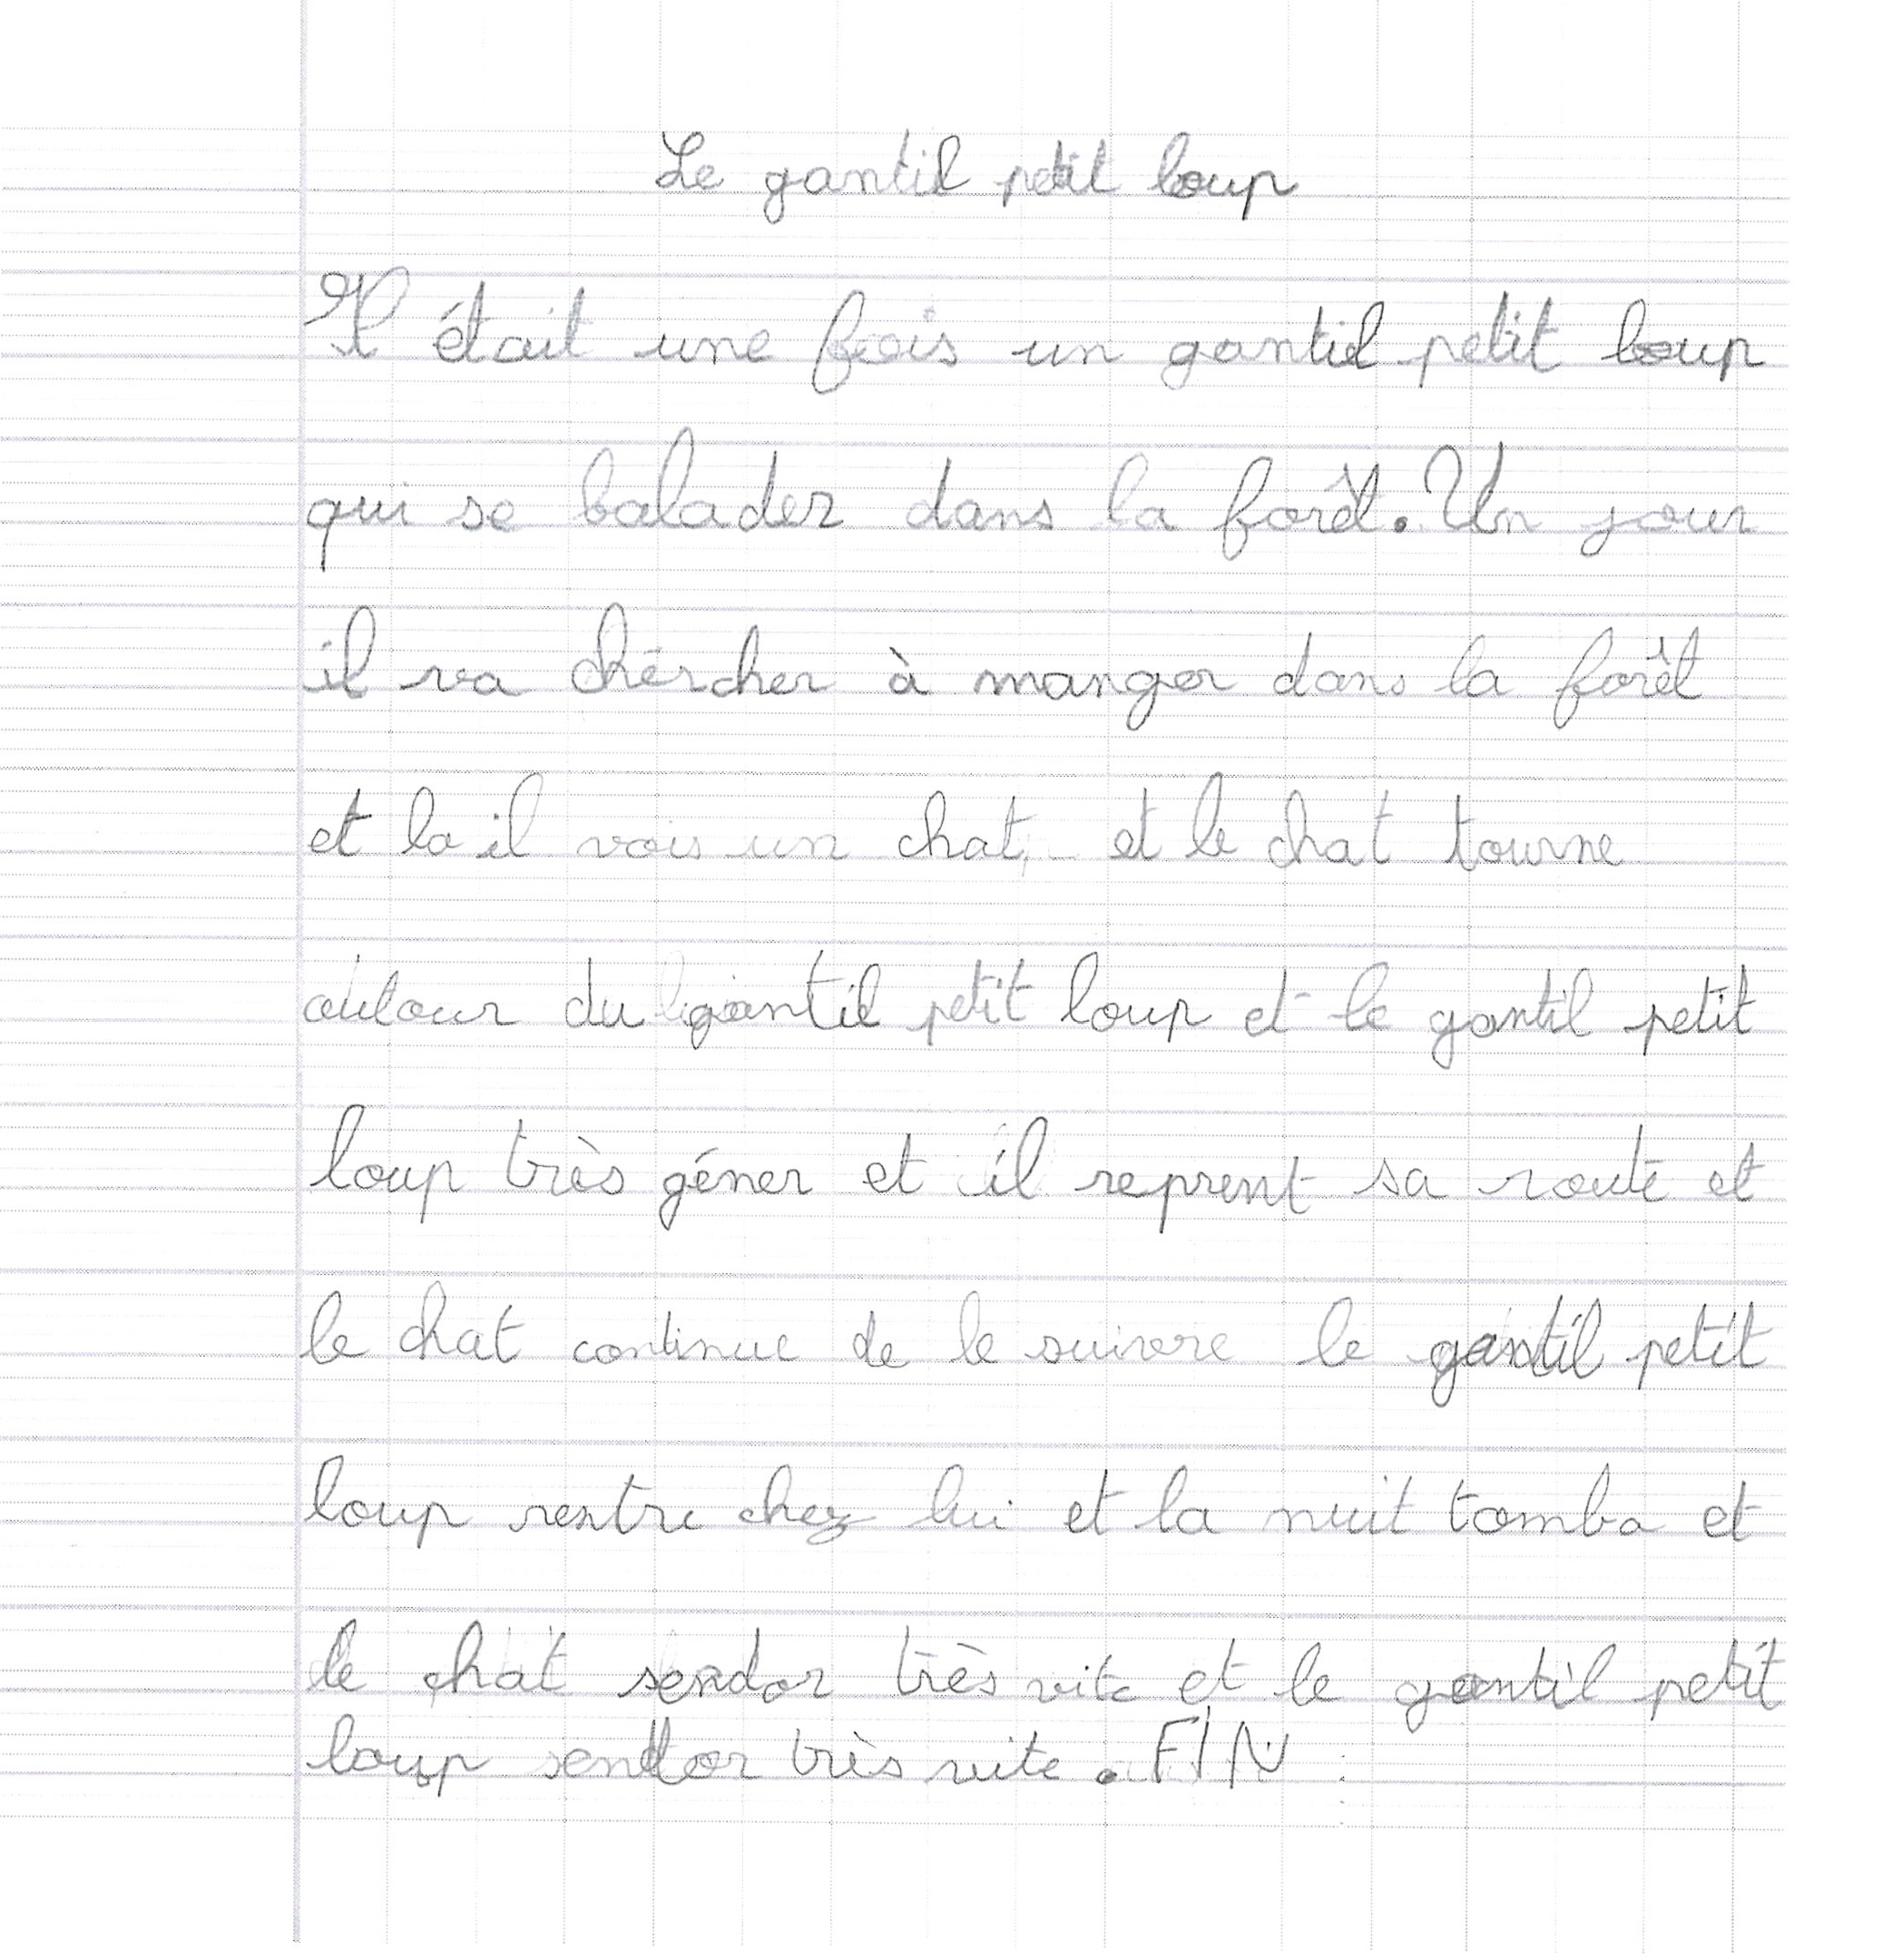 Le gantil petit loup
Il était une fois un gantil petit loup
qui se balader dans la forêt. Un jour
il va chércher à manger dans la forêt
et la il vois un chat, et le chat tourne
autour du gantil petit loup et le gantil petit
loup très géner et il reprent sa route et
le chat continue de le suivre le gantil petit
loup rentre chez lui et la nuit tomba et
le chat sendor très vite et le gantil petit
loup sendor très vite. FIN